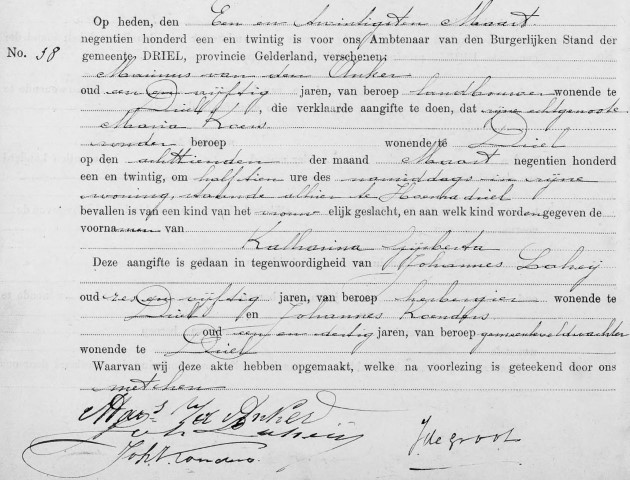 Op heden, den Een en twintigsten Maart
negentien honderd een en twintig is voor ons Ambtenaar van den Burgerlijken Stand der
No. 38 gemeente DRIEL, provincie Gelderland, verschenen:
Marinus van den Anker
oud een en vijftig jaren, van beroep landbouwer wonende te
Driel, die verklaarde aangifte te doen, dat zijne echtgenoote
Maria Koens
zonder beroep wonende te Driel
op den achttienden der maand Maart negentien honderd
een en twintig, om half tien ure des namiddags in zijne
woning, staande alhier te Hoenzadriel
bevallen is van een kind van het vrouwelijk geslacht, en aan welk kind worden gegeven de
voornamen van
Katharina Gijsberta
Deze aangifte is gedaan in tegenwoordigheid van Johannes
oud zes en vijftig jaren, van beroep herbergier wonende te
Driel en Johannes
oud een en dertig jaren, van beroep gemeenteveldwachter
wonende te Driel
Waarvan wij deze akte hebben opgemaakt, welke na voorlezing is geteekend door ons
met hen
v d Anker
J de Groot